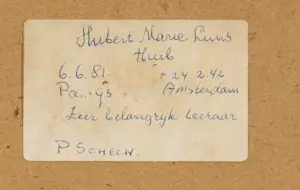 Hubert Marie Luns
Huib
6.6.81 + 24.2.42
Parijs Amsterdam
Zeer belangryk leeraar
P Scheen.